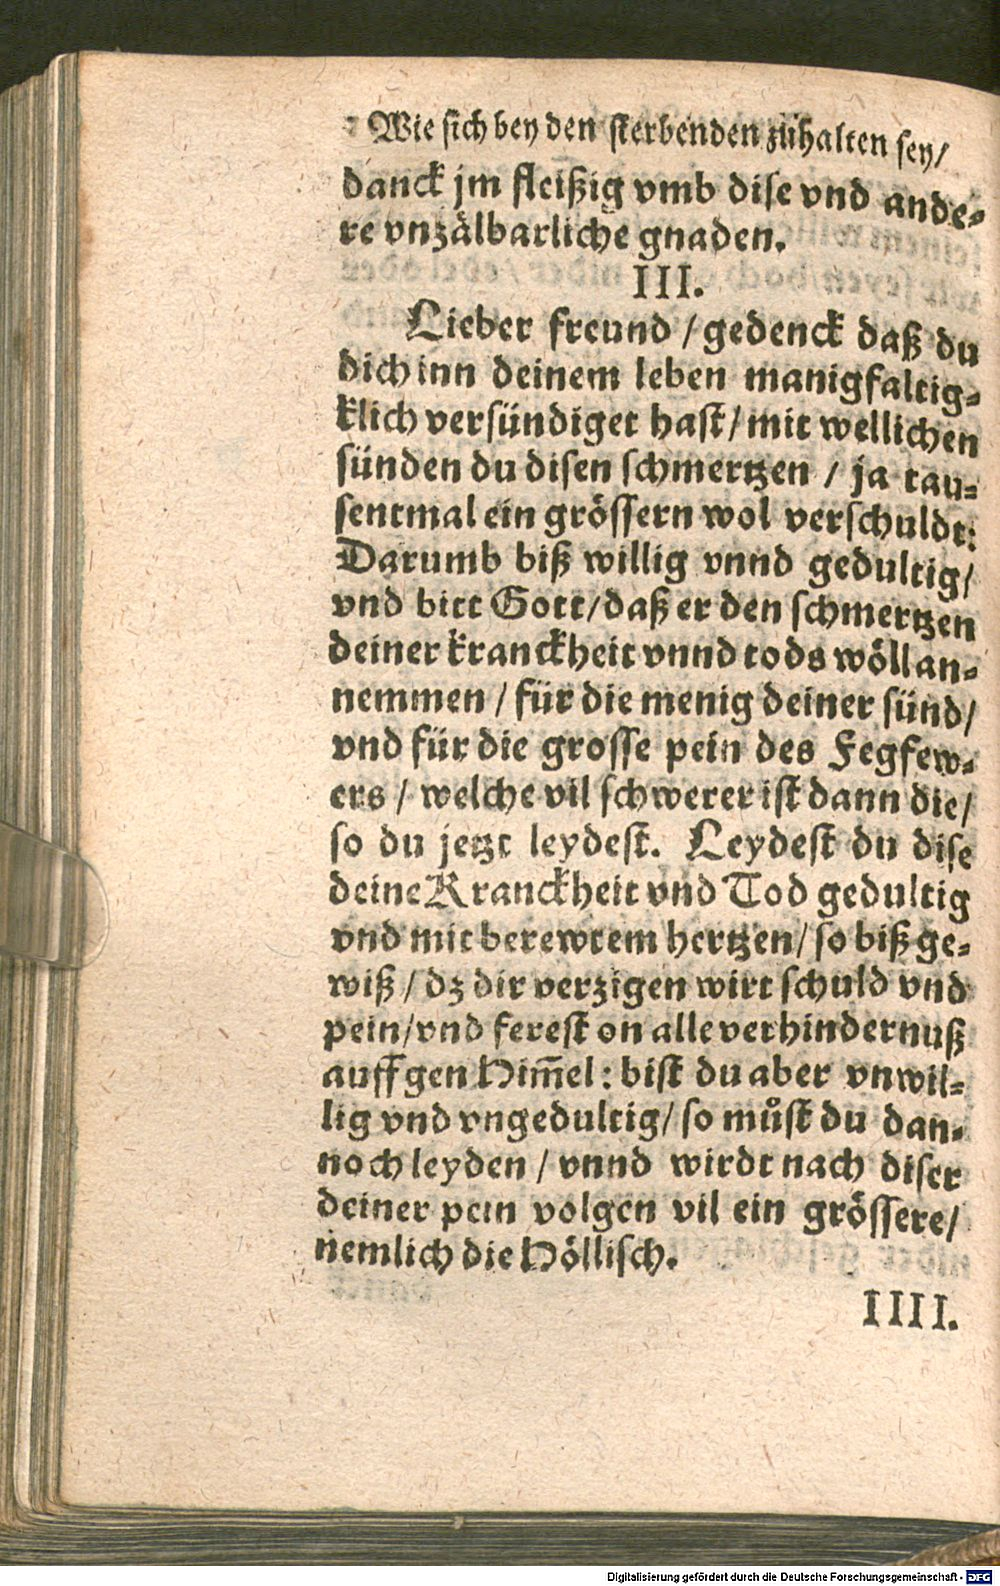 Wie sich bey den sterbenden zůhalten sey/
danck jm fleißig vmb dise vnd ande-
re vnzälbarliche gnaden.
III.
Lieber freund / gedenck daß du
dich inn deinem leben manigfaltig-
klich versündiget hast / mit wellichen
sünden du disen schmertzen / ja tau-
sentmal ein grössern wol verschuldt:
Darumb biß willig vnnd gedultig/
vnd bitt Gott / daß er den schmertzen
deiner kranckheit vnnd tods wöll an-
nemmen / für die menig deiner sünd/
vnd für die grosse pein des Fegfew-
ers / welche vil schwerer ist dann die/
so du jetzt leydest. Leydest du dise
deine Kranckheit vnd Tod gedultig
vnd mit berewtem hertzen / so biß ge-
wiß / dz dir verzigen wirt schuld vnd
pein / vnd ferest on alle verhindernuß
auff gen Him̃el : bist du aber vnwil-
lig vnd vngedultig / so můst du dan-
noch leyden / vnnd wirdt nach diser
deiner pein volgen vil ein grössere/
nemlich die Höllisch.
IIII.
Digitalisierung gefördert durch die Deutsche Forschungsgemeinschaft - DFG